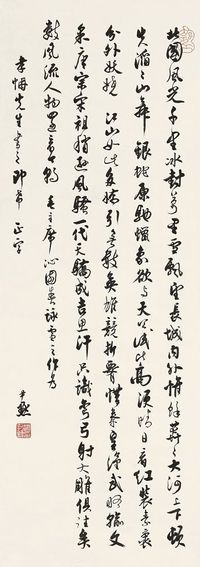 北國風光千里冰封萬里雪飄望長城內外惟餘莽莽大河上下頓
失滔滔山舞銀蛇原馳蠟象欲與天公試比高須晴日看紅裝素裹
分外妖嬈 江山如此多嬌引無數英雄競折腰惜秦皇漢武略輸文
采唐宗宋祖稍遜風騷一代天驕成吉思汗只識彎弓射大雕俱往矣
數風流人物還看今朝 毛主席沁園春詠雪之作為
先生書之即希 正字
尹默